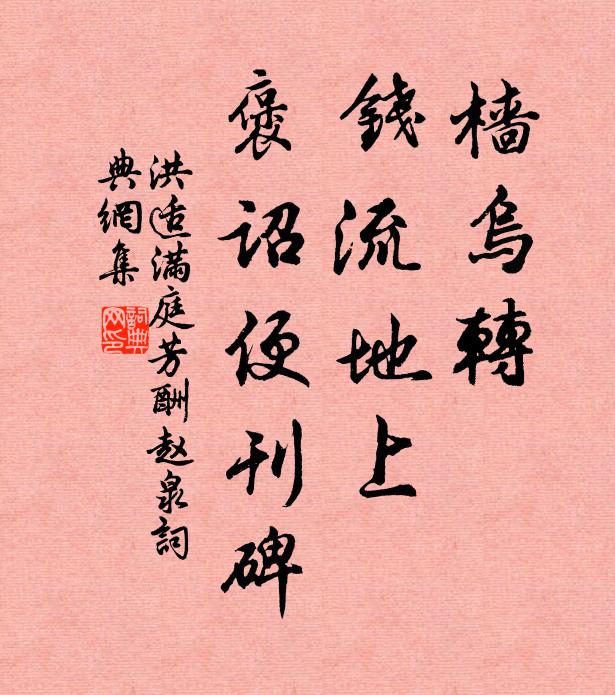 檣烏轉
錢流地上
褒詔便刊碑
洪适滿庭芳酬赵泉詞
典網集
詞典网印